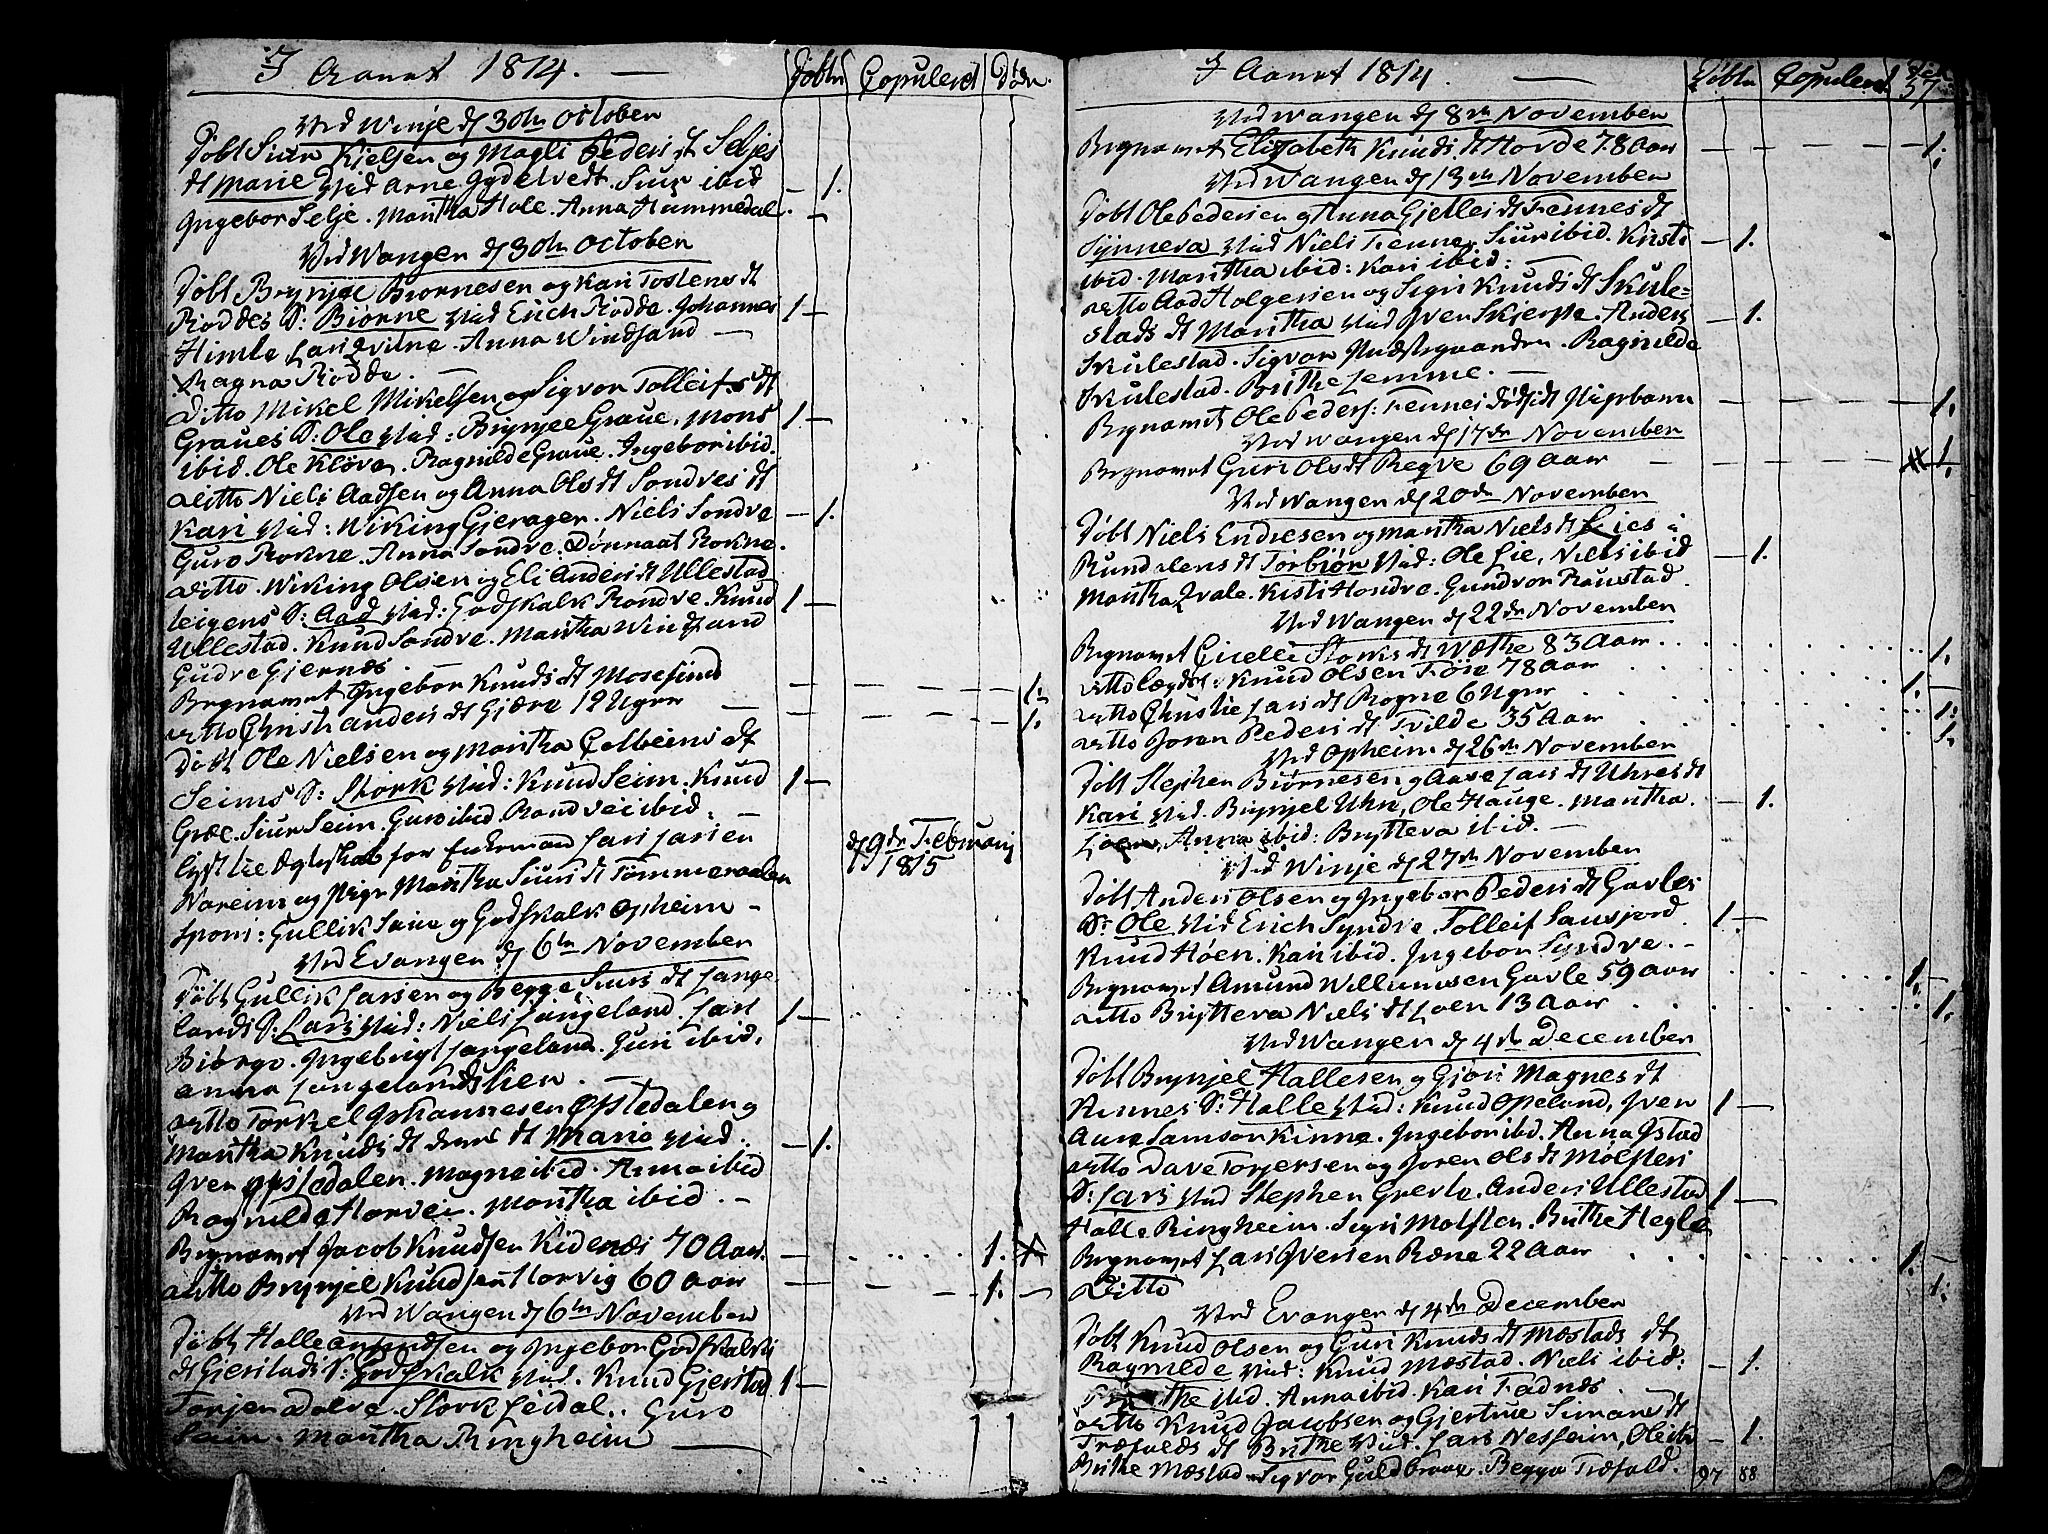 I Aaret 1814. — Døbte Copulered Døde
Ved Winje d 30te October
Døbt Siur Kielsen og Magli Peders dt Seljes
dt Marie Vid Arne Gydelvedt. Siur ibid
Ingebor Selje. Martha Hole. Anna Hummedal. — 1.
Ved Wangen d 30te October
Døbt Brynjel Biørnesen og Kari Tostens dt
Rødde S: Biørne Vid Erich Rødde. Johannes 1 —
Himle Lars Qvitne. Anna Windsand —
Ragna Rødde. —
Ditto Mikel Mikelsen og Sigvor Tolleifs dt
Graues S: Ole Vid: Brynjel Graue. Mons 1 —
ibid. Ole Kløve. Ragnilde Graue. Ingebor ibid.
Ditto Niels Aadsen og Anna Ols dt Sondves dt
Kari Vid: Wiking Gjerager. Niels Sondve — 1.
Guro Rokne. Anna Sondve. Dønnaat Rokne.
Ditto. Wiking Olsen og Eli Anders dt Ullestad
leigens S: Aad Vid: Godskalk Rondve. Knud 1 —
Ullestad. Knud Sondve. Martha Windsand
Gudve Gjernes.
Begravet Ingebor Knuds dt Mosefind — — — 1.
ditto Christi Anders dt Gjære 12 Uger — — — 1.
Døbt Ole Nielsen og Martha Colbeins dt
Seims S: Størk Vid: Knud Seim. Knud 1 —
Græe. Siur Seim. Guro ibid. Randvei ibid. —
lyst til Ægteskab for Enkemand Lars Larsen
d 9de Februarij 1815
og Pige Martha Siurs dt Tømmervolden
Spons: Gullik Saue og Godskalk Opheim —
Ved Evangen d 6te November
Døbt Gullik Larsen og Begge Siurs dt Lange
lands S: Lars Vid: Niels Langeland. Lars 1 —
Biørgo. Ingebrigt Langeland. Guri ibid.
Anna Langelandslien. —
ditto Torkel Johannesen Øfstedalen og
Martha Knuds dt deres dt Mario Vid. — 1.
Iven Øfstedalen. Magne ibid. Anna ibid
Ragnilde Horvei. Martha ibid. —
Begravet Jacob Knudsen Kidenæs 70 Aar. — 1.
ditto Brynjel Knudsen Horvig 60 Aar — — — 1. —
Ved Wangen d 6te November
Døbt Halle Amundsen og Ingebor Godskalks
dt Gjerstads S: Godskalk Vid. Knud Gjerstad 1 —
Torjer Dolve. Størk Leidal. Guro
Seim. Martha Ringheim —
I Aaret 1814. — Døbte Copulered. Døde 57
Ved Wangen d 8de November
Begravet Elisabeth Knuds dt Horde 78 Aar — — — — 1.
Ved Wangen d 13de November
Døbt Ole Pedersen og Anna Gjelles dt Tennes dt
Synneva Vid Niels Tenne. Siur ibid. Kristi — 1.
ibid. Martha ibid: Kari ibid: —
ditto Aad Holgersen og Sigri Knuds dt Skule=
stads dt Martha Vid Iver Skjerpe. Anders — 1.
Skulestad. Sigvor. Ragnilde
Skulestad. Brithe Lemme. —
Begravet Ole Peders: Tennes Døfødt Pigebarn — — — — 1.
Ved Wangen d 17de November
Begravet Guri Ols dt Reqve 69 Aar — — — — 1.
Ved Wangen d 20de November
Døbt Niels Endresen og Martha Niels dt Lies i
Rundalens dt Torbiør Vid: Ole Lie, Niels ibid — 1.
Martha Qvale. Kisti Hondve. Gundvor Raustad.
Ved Wangen d 22de November
Begravet Giælle Størks dt Wæthe 83 Aar. . . . 1.
ditto Lægds: Knud Olsen Tøse 78 Aar . . . 1. —
ditto Christie Lars dt Rogne 6 Uger . . . 1.
ditto Joren Peders dt Tvilde 35 Aar . . . 1.
Ved Opheim d 26de November
Døbt Stephen Biørnesen og Aase Lars dt Uhres dt
Kari Vid. Brynjel Uhre, Ole Hauge. Martha. — 1.
Loen, Anna ibid: Brytteva ibid. —
Ved Winje d 27de November
Døbt Anders Olsen og Ingebor Peders dt Gavles
S: Ole Vid Erich Syndve. Tolleif Sausjord. 1 —
Knud Høen. Kari ibid. Ingebor Syndve. —
Begravet Amund Willumsen Gavle 59 Aar . . . 1. —
ditto Brytteva Niels dt Loen 13 Aar . . . 1.
Ved Wangen d 4de December
Døbt Brynjel Hallesen og Gjøri Magnes dt
Kinnes S: Halle Vid: Knud Opeland, Iven 1 —
Aure Samson Kinne. Ingebor ibid. Anna Istad
ditto Dave Torjersen og Joren Ols dt Mølsters
S: Lars Vid Stephen Grevle. Anders Ullestad 1 —
Halle Ringheim. Sigri Molster. Brithe Hegle
Begravet Lars Iversen Ræne 22 Aar . . . 1. —
Ditto 1.
Ved Evangen d 4de December
Døbt Knud Olsen og Guri Knuds dt Mæstads dt
Ragnilde Vid: Knud Mæstad. Niels ibid: — 1.
Brithe ibid. Anna ibid. Kari Fadnæs.
ditto Knud Jacobsen og Gjertrue Simons dt
Træfalds dt Brithe Vid. Lars Nesheim, Ole ibi — 1.
Brithe Mæstad. Sigvor Guldbraae. Begga Træfald. 97 88